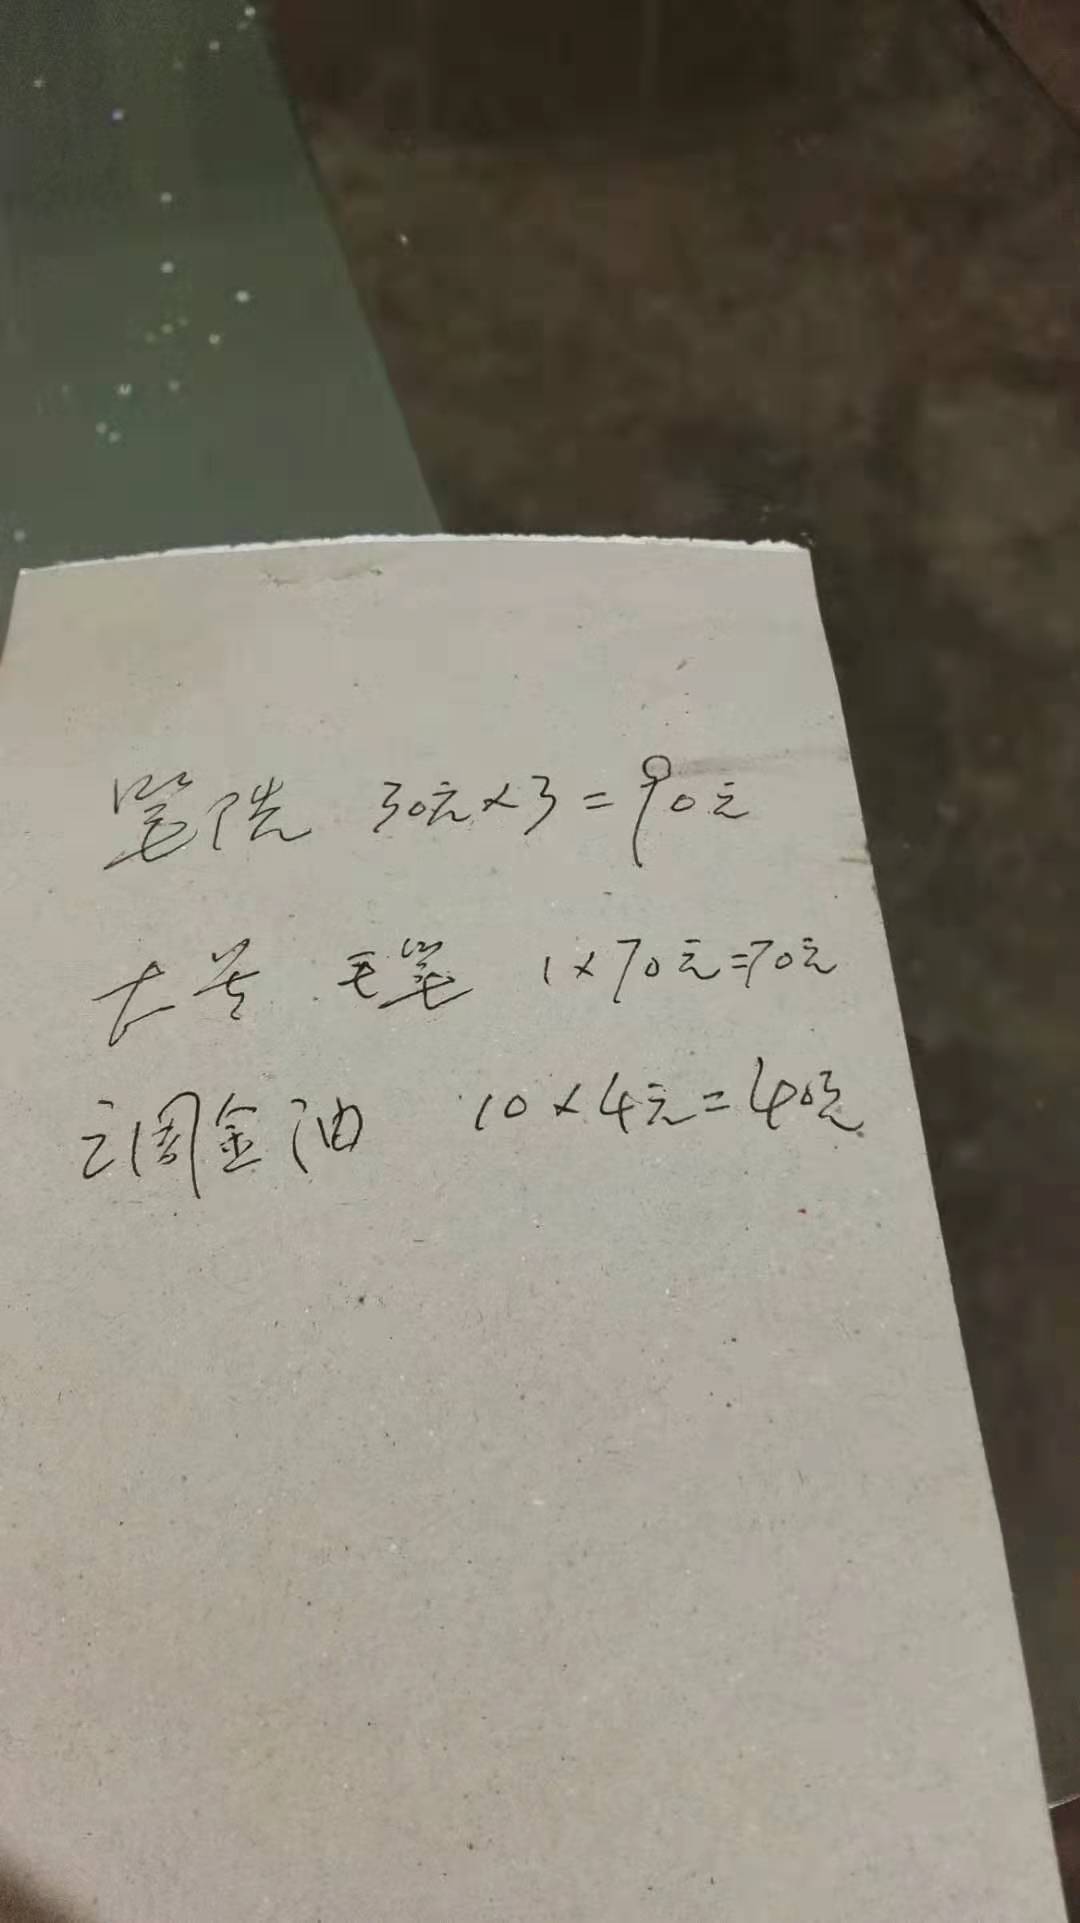 笔洗 30元×3=90元
大号 毛笔 1×70元=70元
调金油 10×4元=40元